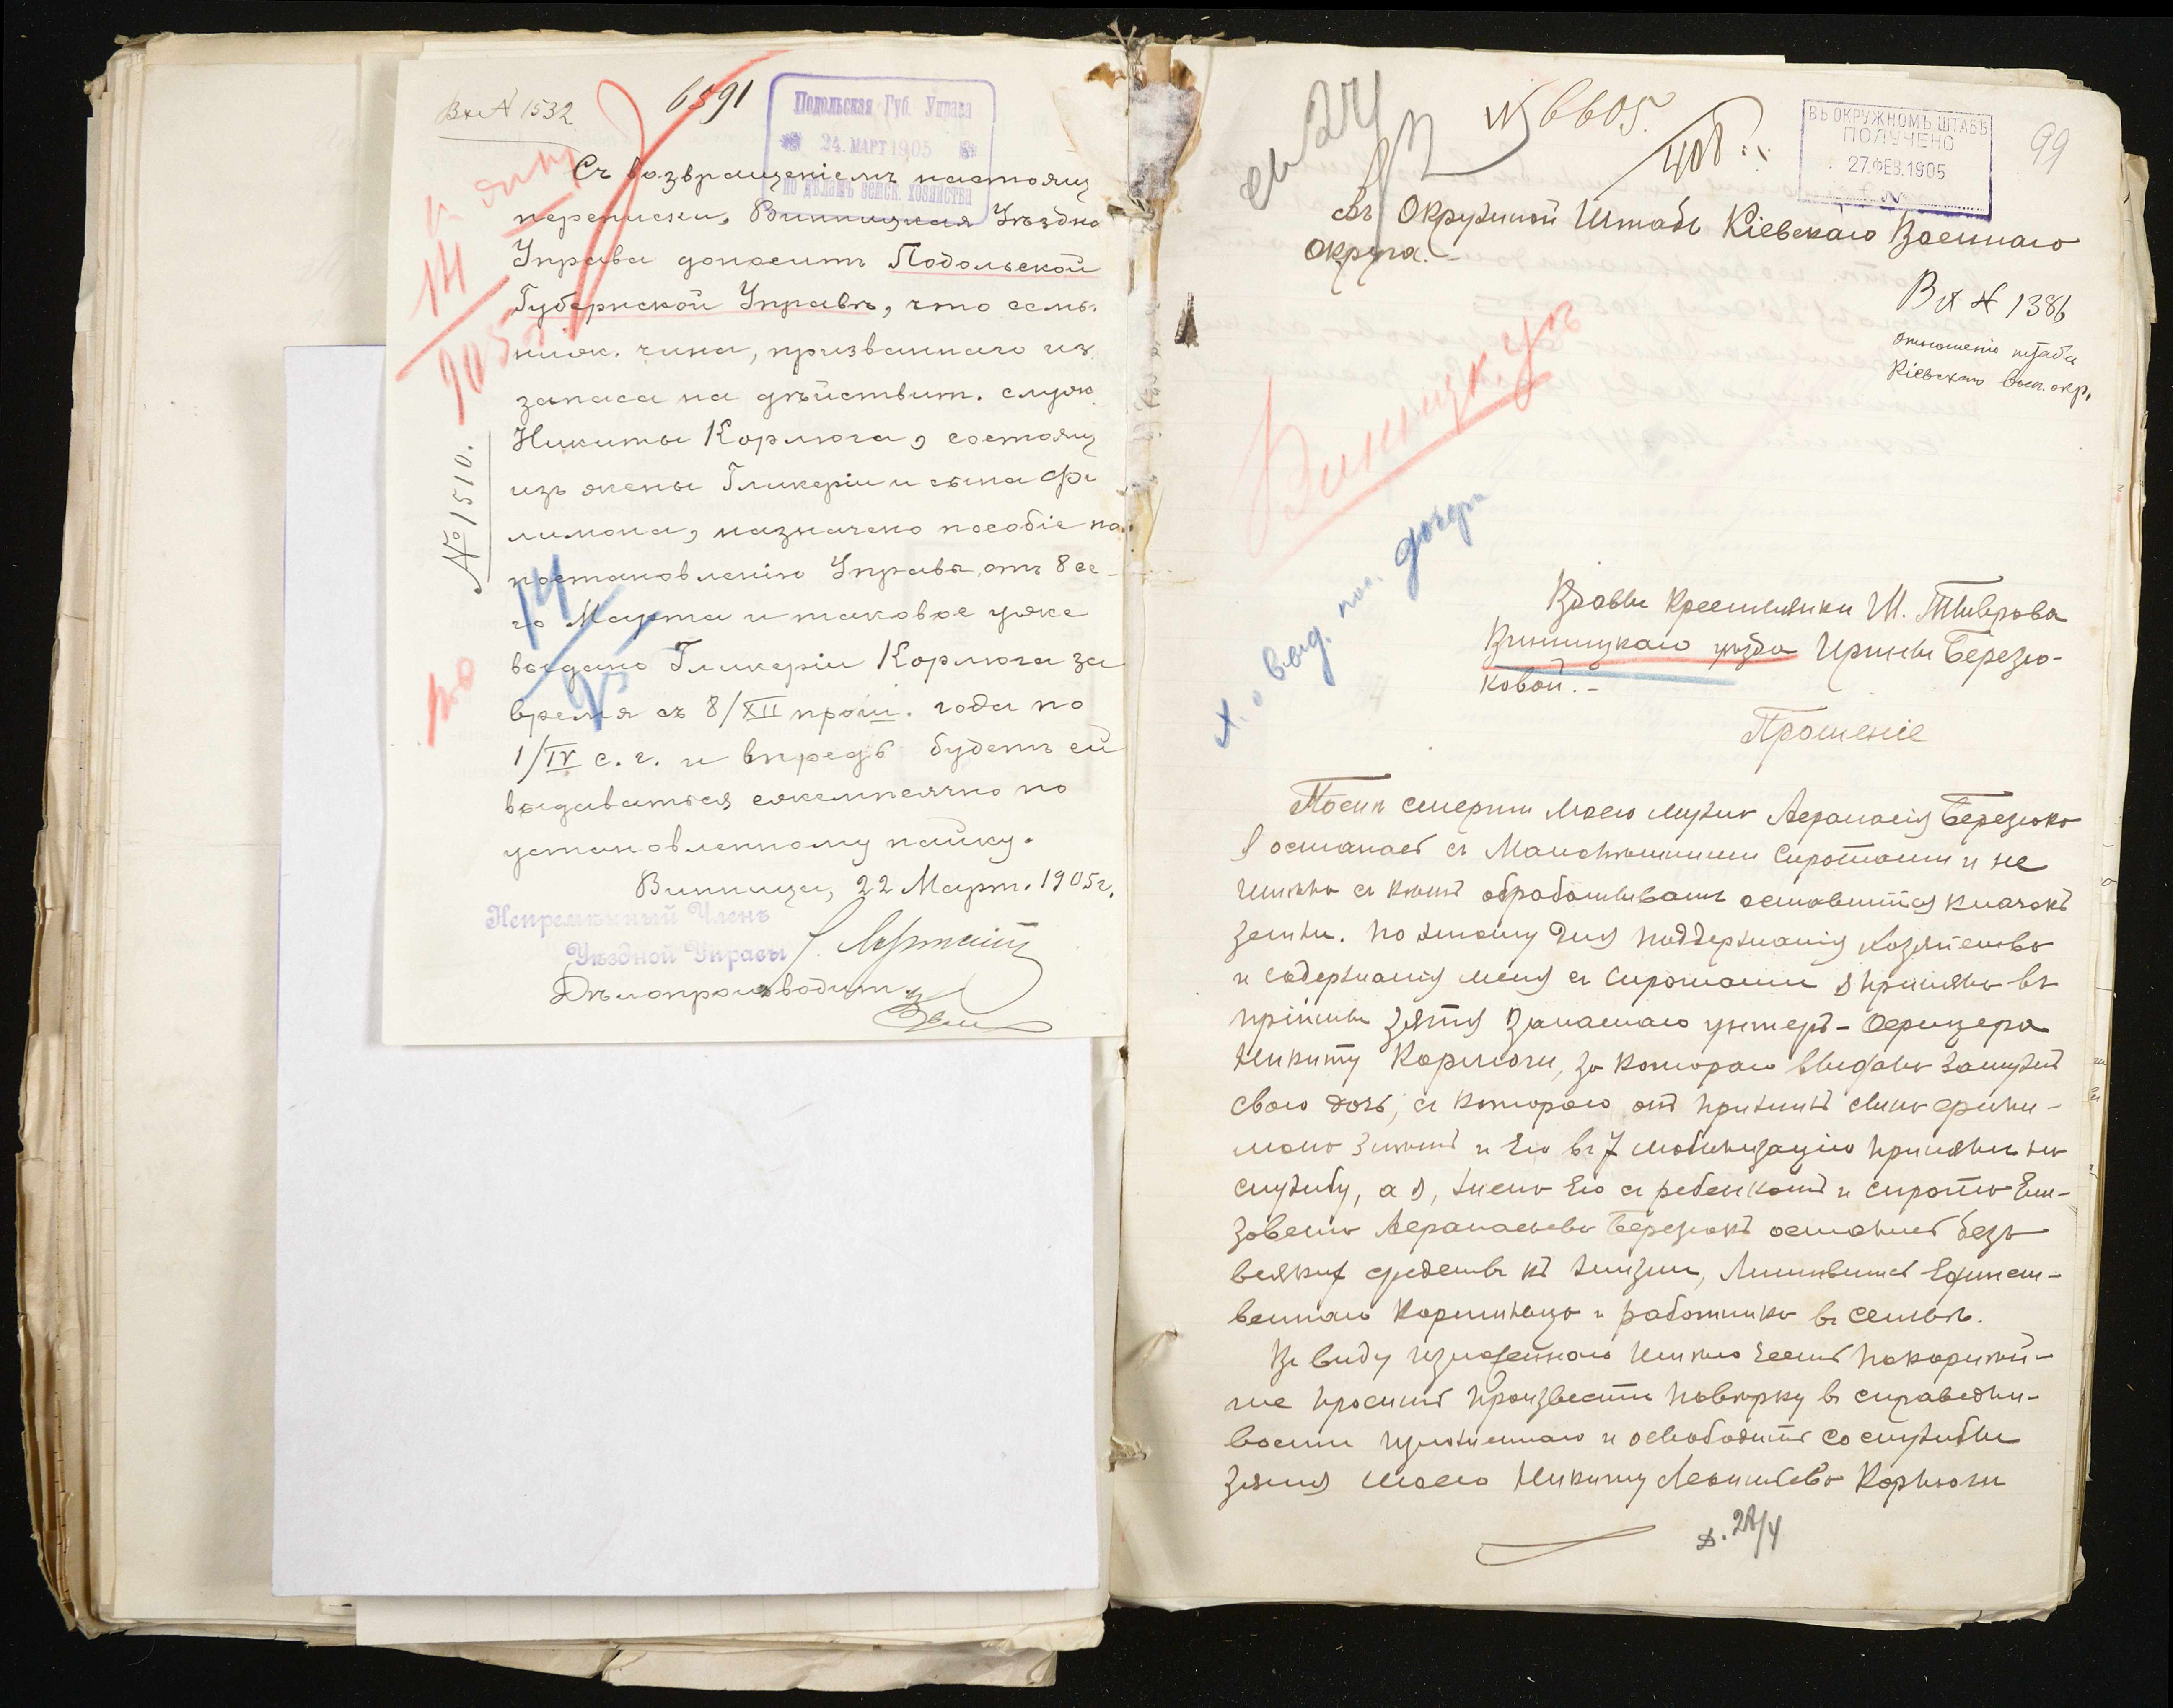 Вх № 1532
6591
Подольская Губ. Управа
24. МАРТ 1905
по дѣламъ земск. хозяйства
Съ возвращеніемъ настоящ
переписки, Винницкая Уѣздна
Управа доноситъ Подольской
Губернской Управѣ, что семь.
нижн. чина, призваннаго из
запаса на дѣйствит. служ.
Никиты Корлюга, состоящ
изъ жены Гликеріи и сына Фи
лимона, назначено пособіе по
постановленію Управы отъ 8 се-
го Марта и таковое уже
выдано Гликеріи Корлюга за
время съ 8/XII прош. года по
1/IV с. г. и впредь будетъ ей
выдаваться ежемѣсячно по
установленному пайку.
Винница, 22 Март. 1905 г.
Непремѣнный Членъ
Уѣздной Управы
Дѣлопроизводит.
№ 1510.
14
905
№ 6605.
ВЪ ОКРУЖНОМЪ ШТАБѢ
ПОЛУЧЕНО
27. ФЕВ. 1905
№
99
Въ Окружной Штабъ Кіевскаго Военнаго
Округа.-
Вх № 1386
отношеніе штаба
Кіевскаго воен. окр.
Винницк. у.
Вдовы Крестьянки М. Тыврова
Винницкаго уѣзда Ирины Березю-
ковой.-
Прошеніе
Послѣ смерти моего мужа Афанасія Березюка
я осталась съ малолѣтними сиротами и не
имѣла съ кѣмъ обрабатывать оставшійся клачокъ
земли. По этому для поддержанія хозяйства
и содержанія меня съ сиротами я приняла въ
пріймы зятя запаснаго унтеръ-офицера
Никиту Корлюги, за котораго выдала замужъ
свою дочь, съ которою онъ прижилъ сына Фили-
мона зимой и его въ 7 мобилизацію приняли на
службу, а я, жена его съ ребенкомъ и сирота Ели-
завета Афанасьева Березюкъ остались безъ
всякихъ средствъ къ жизни, лишившись единст-
веннаго кормильца и работника въ семьѣ.
Въ виду изложеннаго имѣю честь покорнѣй-
ше просить произвести повѣрку въ справедли-
вости изложеннаго и освободить со службы
зятя моего Никиту Корлюги